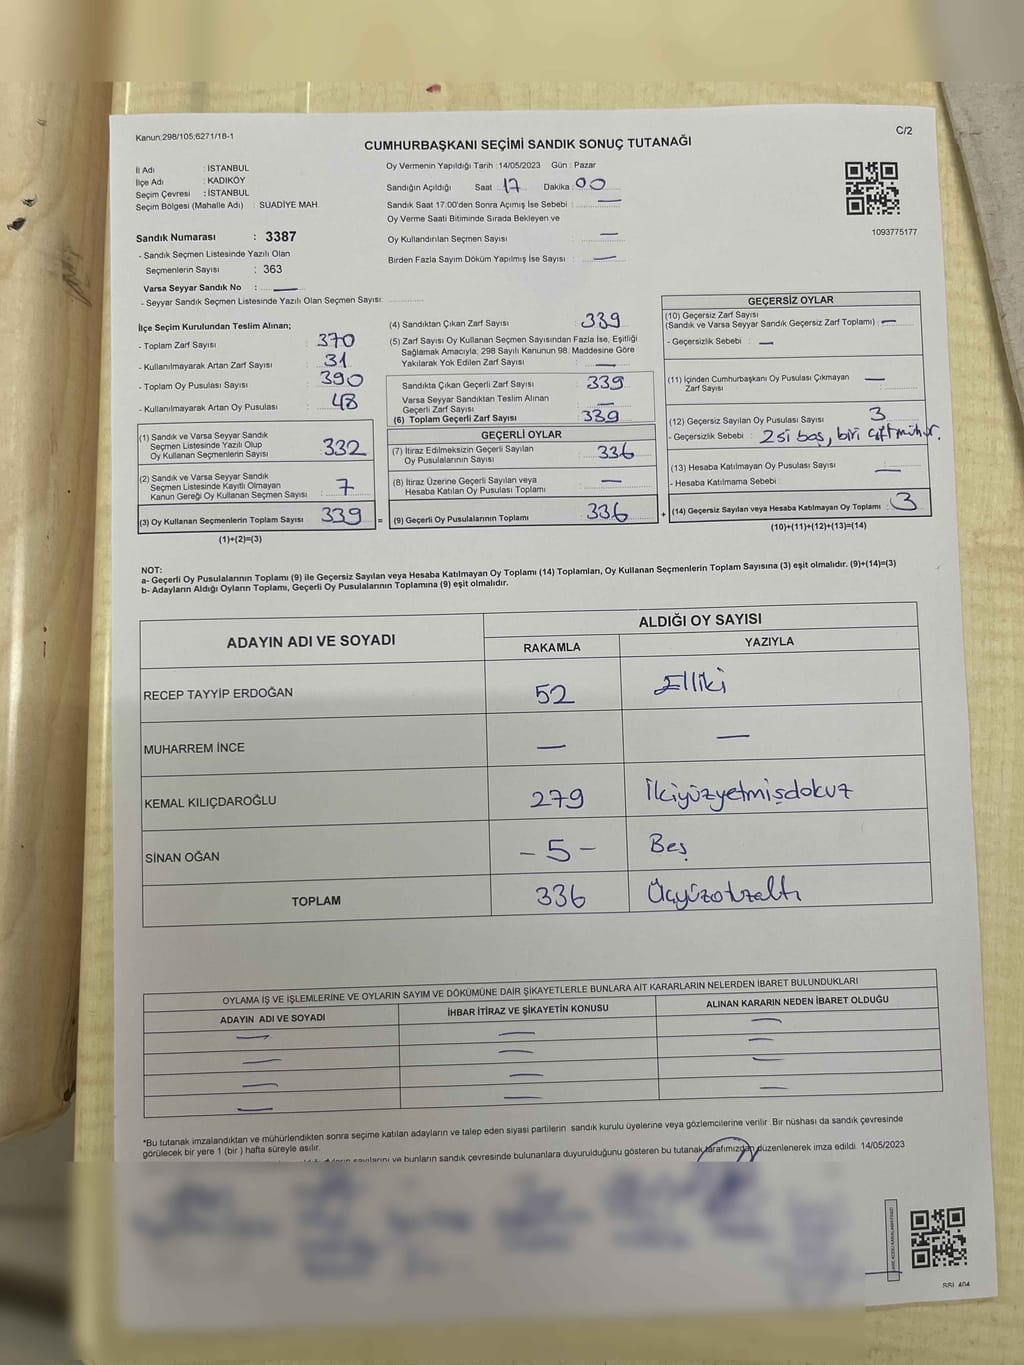 Kanun:298/105;6271/18-1
C/2
CUMHURBAŞKANI SEÇİMİ SANDIK SONUÇ TUTANAĞI
İl Adı : İSTANBUL
İlçe Adı : KADIKÖY
Seçim Çevresi : İSTANBUL
Seçim Bölgesi (Mahalle Adı) : SUADİYE MAH.
Sandık Numarası : 3387
- Sandık Seçmen Listesinde Yazılı Olan
Seçmenlerin Sayısı : 363
Varsa Seyyar Sandık No : —
- Seyyar Sandık Seçmen Listesinde Yazılı Olan Seçmen Sayısı:
Oy Vermenin Yapıldığı Tarih :14/05/2023 Gün : Pazar
Sandığın Açıldığı Saat : 17 Dakika : 00
Sandık Saat 17.00'den Sonra Açımış İse Sebebi : —
Oy Verme Saati Bitiminde Sırada Bekleyen ve
Oy Kullandırılan Seçmen Sayısı : —
Birden Fazla Sayım Döküm Yapılmış İse Sayısı : —
1093775177
İlçe Seçim Kurulundan Teslim Alınan;
- Toplam Zarf Sayısı : 370
- Kullanılmayarak Artan Zarf Sayısı : 31
- Toplam Oy Pusulası Sayısı : 390
- Kullanılmayarak Artan Oy Pusulası : 48
(1) Sandık ve Varsa Seyyar Sandık
Seçmen Listesinde Yazılı Olup
Oy Kullanan Seçmenlerin Sayısı : 332
(2) Sandık ve Varsa Seyyar Sandık
Seçmen Listesinde Kayıtlı Olmayan
Kanun Gereği Oy Kullanan Seçmen Sayısı : 7
(3) Oy Kullanan Seçmenlerin Toplam Sayısı : 339 =
(1)+(2)=(3)
(4) Sandıktan Çıkan Zarf Sayısı : 339
(5) Zarf Sayısı Oy Kullanan Seçmen Sayısından Fazla İse, Eşitliği
Sağlamak Amacıyla; 298 Sayılı Kanunun 98. Maddesine Göre
Yakılarak Yok Edilen Zarf Sayısı : —
Sandıkta Çıkan Geçerli Zarf Sayısı : 339
Varsa Seyyar Sandıktan Teslim Alınan
Geçerli Zarf Sayısı : —
(6) Toplam Geçerli Zarf Sayısı : 339
GEÇERLİ OYLAR
(7) İtiraz Edilmeksizin Geçerli Sayılan
Oy Pusulalarının Sayısı : 336
(8) İtiraz Üzerine Geçerli Sayılan veya
Hesaba Katılan Oy Pusulası Toplamı : —
(9) Geçerli Oy Pusulalarının Toplamı : 336 +
GEÇERSİZ OYLAR
(10) Geçersiz Zarf Sayısı
(Sandık ve Varsa Seyyar Sandık Geçersiz Zarf Toplamı) : —
- Geçersizlik Sebebi : —
(11) İçinden Cumhurbaşkanı Oy Pusulası Çıkmayan
Zarf Sayısı : —
(12) Geçersiz Sayılan Oy Pusulası Sayısı : 3
- Geçersizlik Sebebi : 2si boş, biri çift mühür.
(13) Hesaba Katılmayan Oy Pusulası Sayısı : —
- Hesaba Katılmama Sebebi :
(14) Geçersiz Sayılan veya Hesaba Katılmayan Oy Toplamı : 3
(10)+(11)+(12)+(13)=(14)
NOT:
a- Geçerli Oy Pusulalarının Toplamı (9) ile Geçersiz Sayılan veya Hesaba Katılmayan Oy Toplamı (14) Toplamları, Oy Kullanan Seçmenlerin Toplam Sayısına (3) eşit olmalıdır. (9)+(14)=(3)
b- Adayların Aldığı Oyların Toplamı, Geçerli Oy Pusulalarının Toplamına (9) eşit olmalıdır.
ADAYIN ADI VE SOYADI
ALDIĞI OY SAYISI
RAKAMLA YAZIYLA
RECEP TAYYİP ERDOĞAN 52 Elliki
MUHARREM İNCE — —
KEMAL KILIÇDAROĞLU 279 İkiyüzyetmişdokuz
SİNAN OĞAN - 5 - Beş
TOPLAM 336 Üçyüzotuzaltı
OYLAMA İŞ VE İŞLEMLERİNE VE OYLARIN SAYIM VE DÖKÜMÜNE DAİR ŞİKAYETLERLE BUNLARA AİT KARARLARIN NELERDEN İBARET BULUNDUKLARI
ADAYIN ADI VE SOYADI İHBAR İTİRAZ VE ŞİKAYETİN KONUSU ALINAN KARARIN NEDEN İBARET OLDUĞU
— — —
— — —
— — —
— — —
*Bu tutanak imzalandıktan ve mühürlendikten sonra seçime katılan adayların ve talep eden siyasi partilerin sandık kurulu üyelerine veya gözlemcilerine verilir. Bir nüshası da sandık çevresinde
görülecek bir yere 1 (bir) hafta süreyle asılır.
sayılarını ve bunların sandık çevresinde bulunanlara duyurulduğunu gösteren bu tutanak tarafımızdan düzenlenerek imza edildi. 14/05/2023